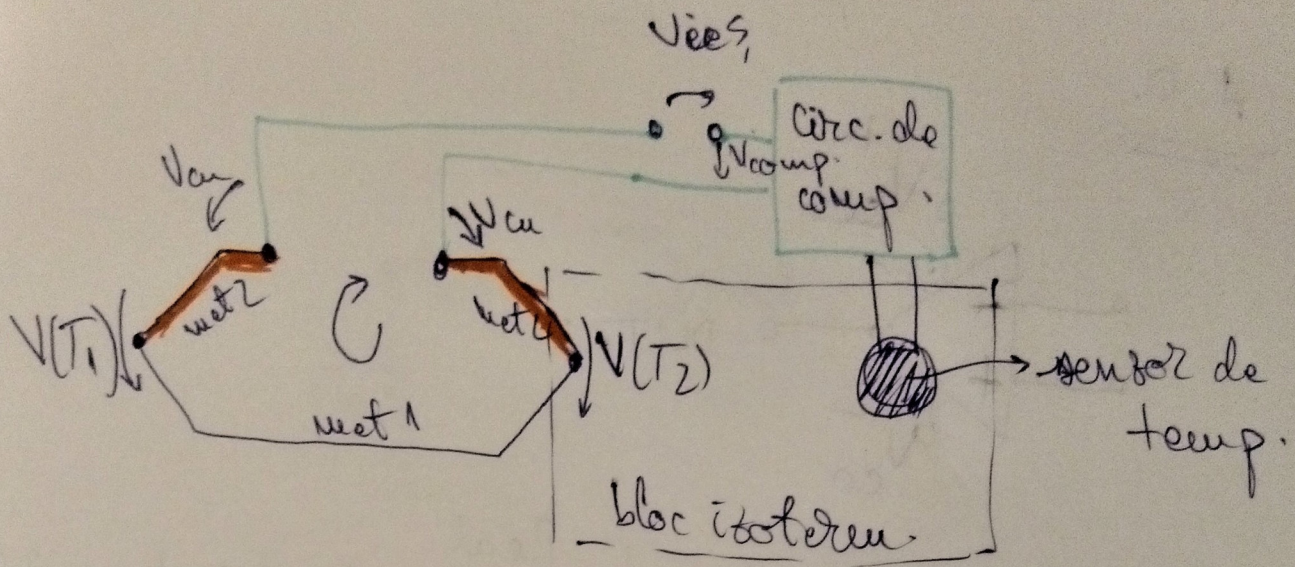 Vieș,
Circ. de
comp.
Vcomp.
Vcu
Vcu
met2
V(T1)
V(T2)
met 1
sensor de
temp.
bloc izoterm.